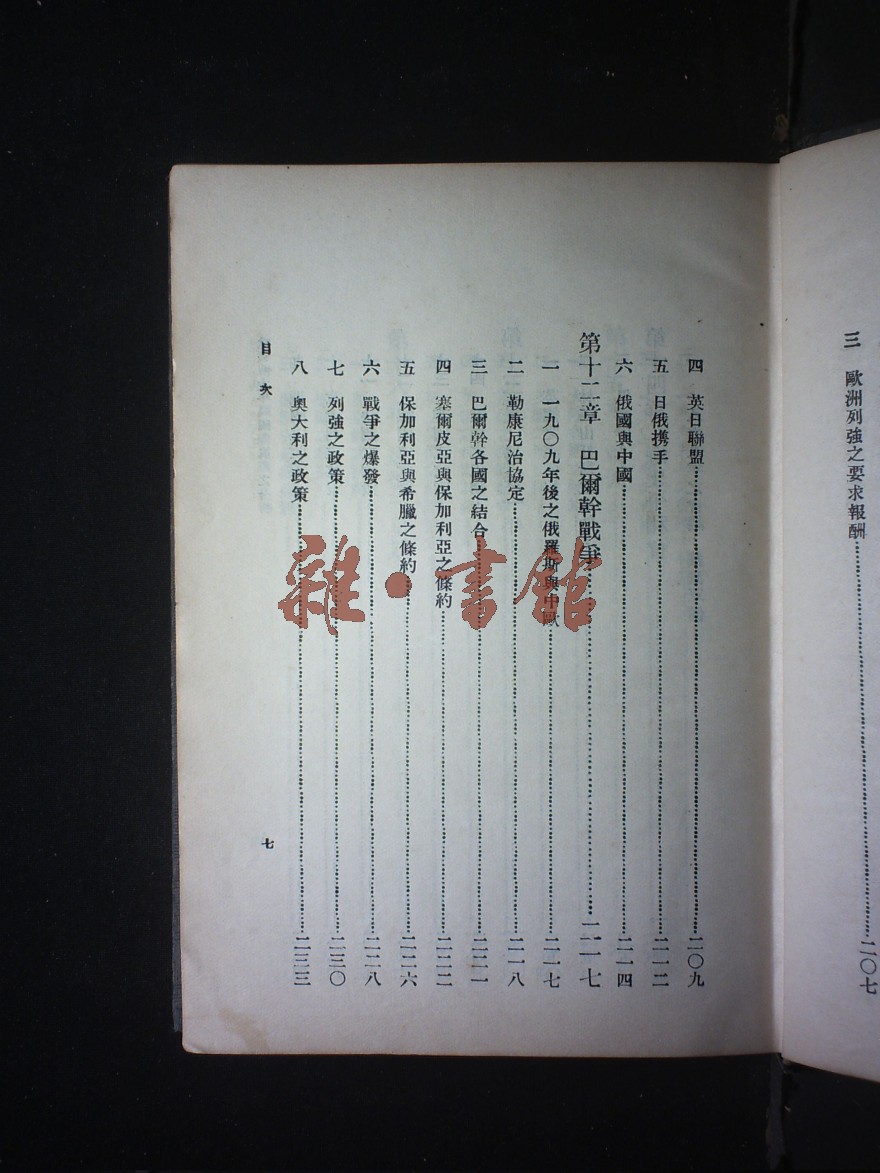 三　歐洲列強之要求報酬……二〇七
四　英日聯盟……二〇九
五　日俄携手……二一二
六　俄國與中國……二一四
第十二章　巴爾幹戰爭……二一七
一　一九〇九年後之俄羅斯與中歐……二一七
二　勒康尼治協定……二一八
三　巴爾幹各國之結合……二二一
四　塞爾皮亞與保加利亞之條約……二二二
五　保加利亞與希臘之條約……二二六
六　戰爭之爆發……二二八
七　列強之政策……二三〇
八　奧大利之政策……二三三
目次
七
雜·書館